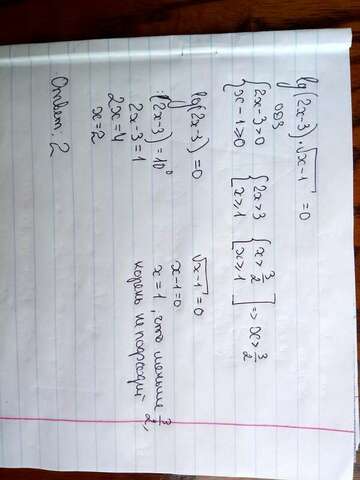 lg(2x-3)·√x-1 = 0
ОДЗ
{2x-3>0 {2x>3 {x>3/2
{x-1≥0 {x≥1 {x≥1 ] => x>3/2
lg(2x-3)=0
:(2x-3)=10⁰
2x-3=1
2x=4
x=2
√x-1=0
x-1=0
x=1, что меньше 3/2,
корень не подходит
Ответ: 2